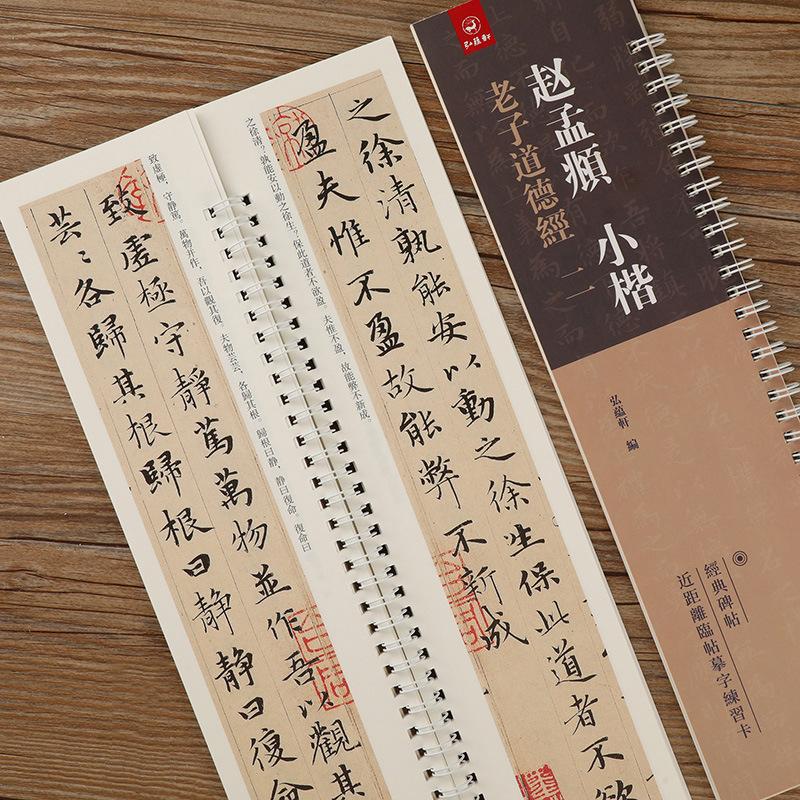 弘蕴軒
赵孟頫 小楷
老子道德經 二
弘蘊軒 編
經典碑帖
近距離臨帖摹字練習卡
之徐清孰能安以動之徐生保此道者不欲
盈夫惟不盈故能弊不新成
之徐清?孰能安以動之徐生?保此道者不欲盈。夫惟不盈,故能弊不新成。
致虛極,守靜篤。萬物并作,吾以觀其復。夫物芸芸,各歸其根。歸根曰静,静曰復命。復命曰
致虛極守靜篤萬物並作吾以觀其
芸〻各歸其根歸根曰靜靜曰復命